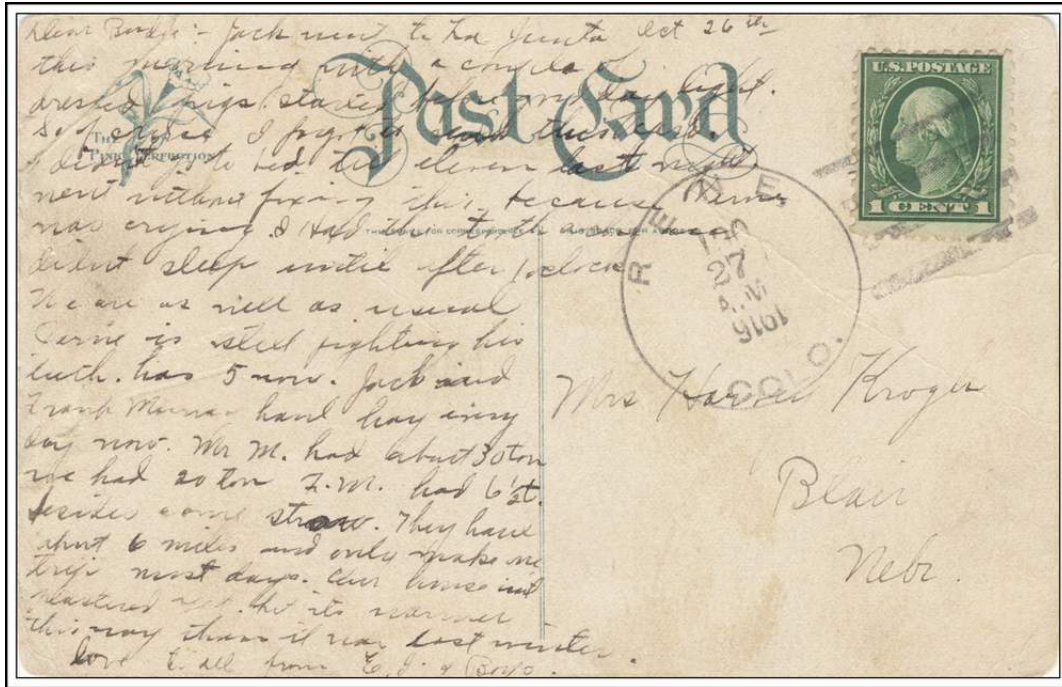 Dear Budge :- Jack went to La Junta Oct 26th
this morning with a couple of
dressed pigs. started before day light.
I forgot
I didn't go to bed till eleven last night
went without fixing this, because Verne
was crying. I had the tooth ache and
didnt sleep untill after 1 oclock
We are as well as usual
Verne is still fighting his
teeth. has 5 now. Jack and
Frank haul hay every
day now. Mr M. had about 30 ton
we had 20 ton F.M. had 6
besides some straw. They haul
about 6 miles and only make one
trip most days. Our house isnt
plastered yet but its warmer
this way than it was last winter.
love to all from E. J. & Boys.
Post Card
THE
PINK PERFECTION
U.S. POSTAGE
1 CENT 1
COLO.
27
A.M.
1916
Mrs Kroger
Blair
Nebr.